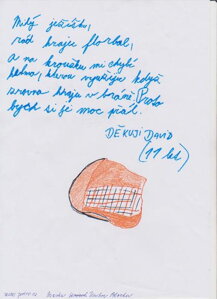 Milý ježíšku,
rád hraju florbal,
a na kroužku mi chybí
helma, kterou využiju když
zrovna hraju v bráně. Proto
bych si ji moc přál.
DĚKUJI DAVID
(11 let)